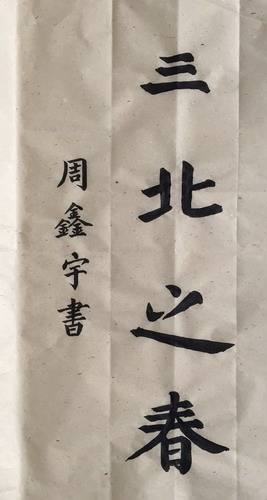 三北之春
周鑫宇書